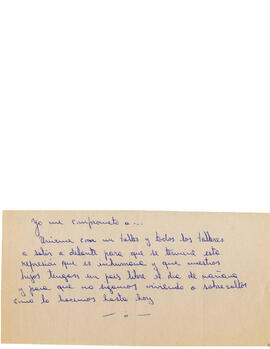 Yo me comprometo a...
Unirme con mi taller y todos los talleres
a salir a delante para que se termine esta
represion que es inhumana y que nuestros
hijos tengan un pais libre el dia de mañana
y para que no sigamos viviendo a sobresaltos
como lo hacemos hasta hoy